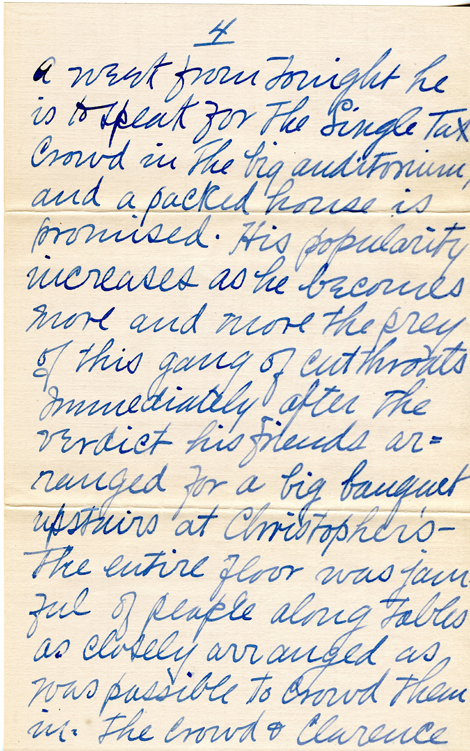 4
a week from tonight he
is to speak for the Single Tax
Crowd in the big auditorium,
and a packed house is
promised. His popularity
increases as he becomes
more and more the prey
of this gang of cutthroats
Immediately after the
verdict his friends ar=
ranged for a big banquet
upstairs at Christopher's -
The entire floor was jam
ful of people along tables
as closely arranged as
was possible to crowd them
in. The crowd & Clarence